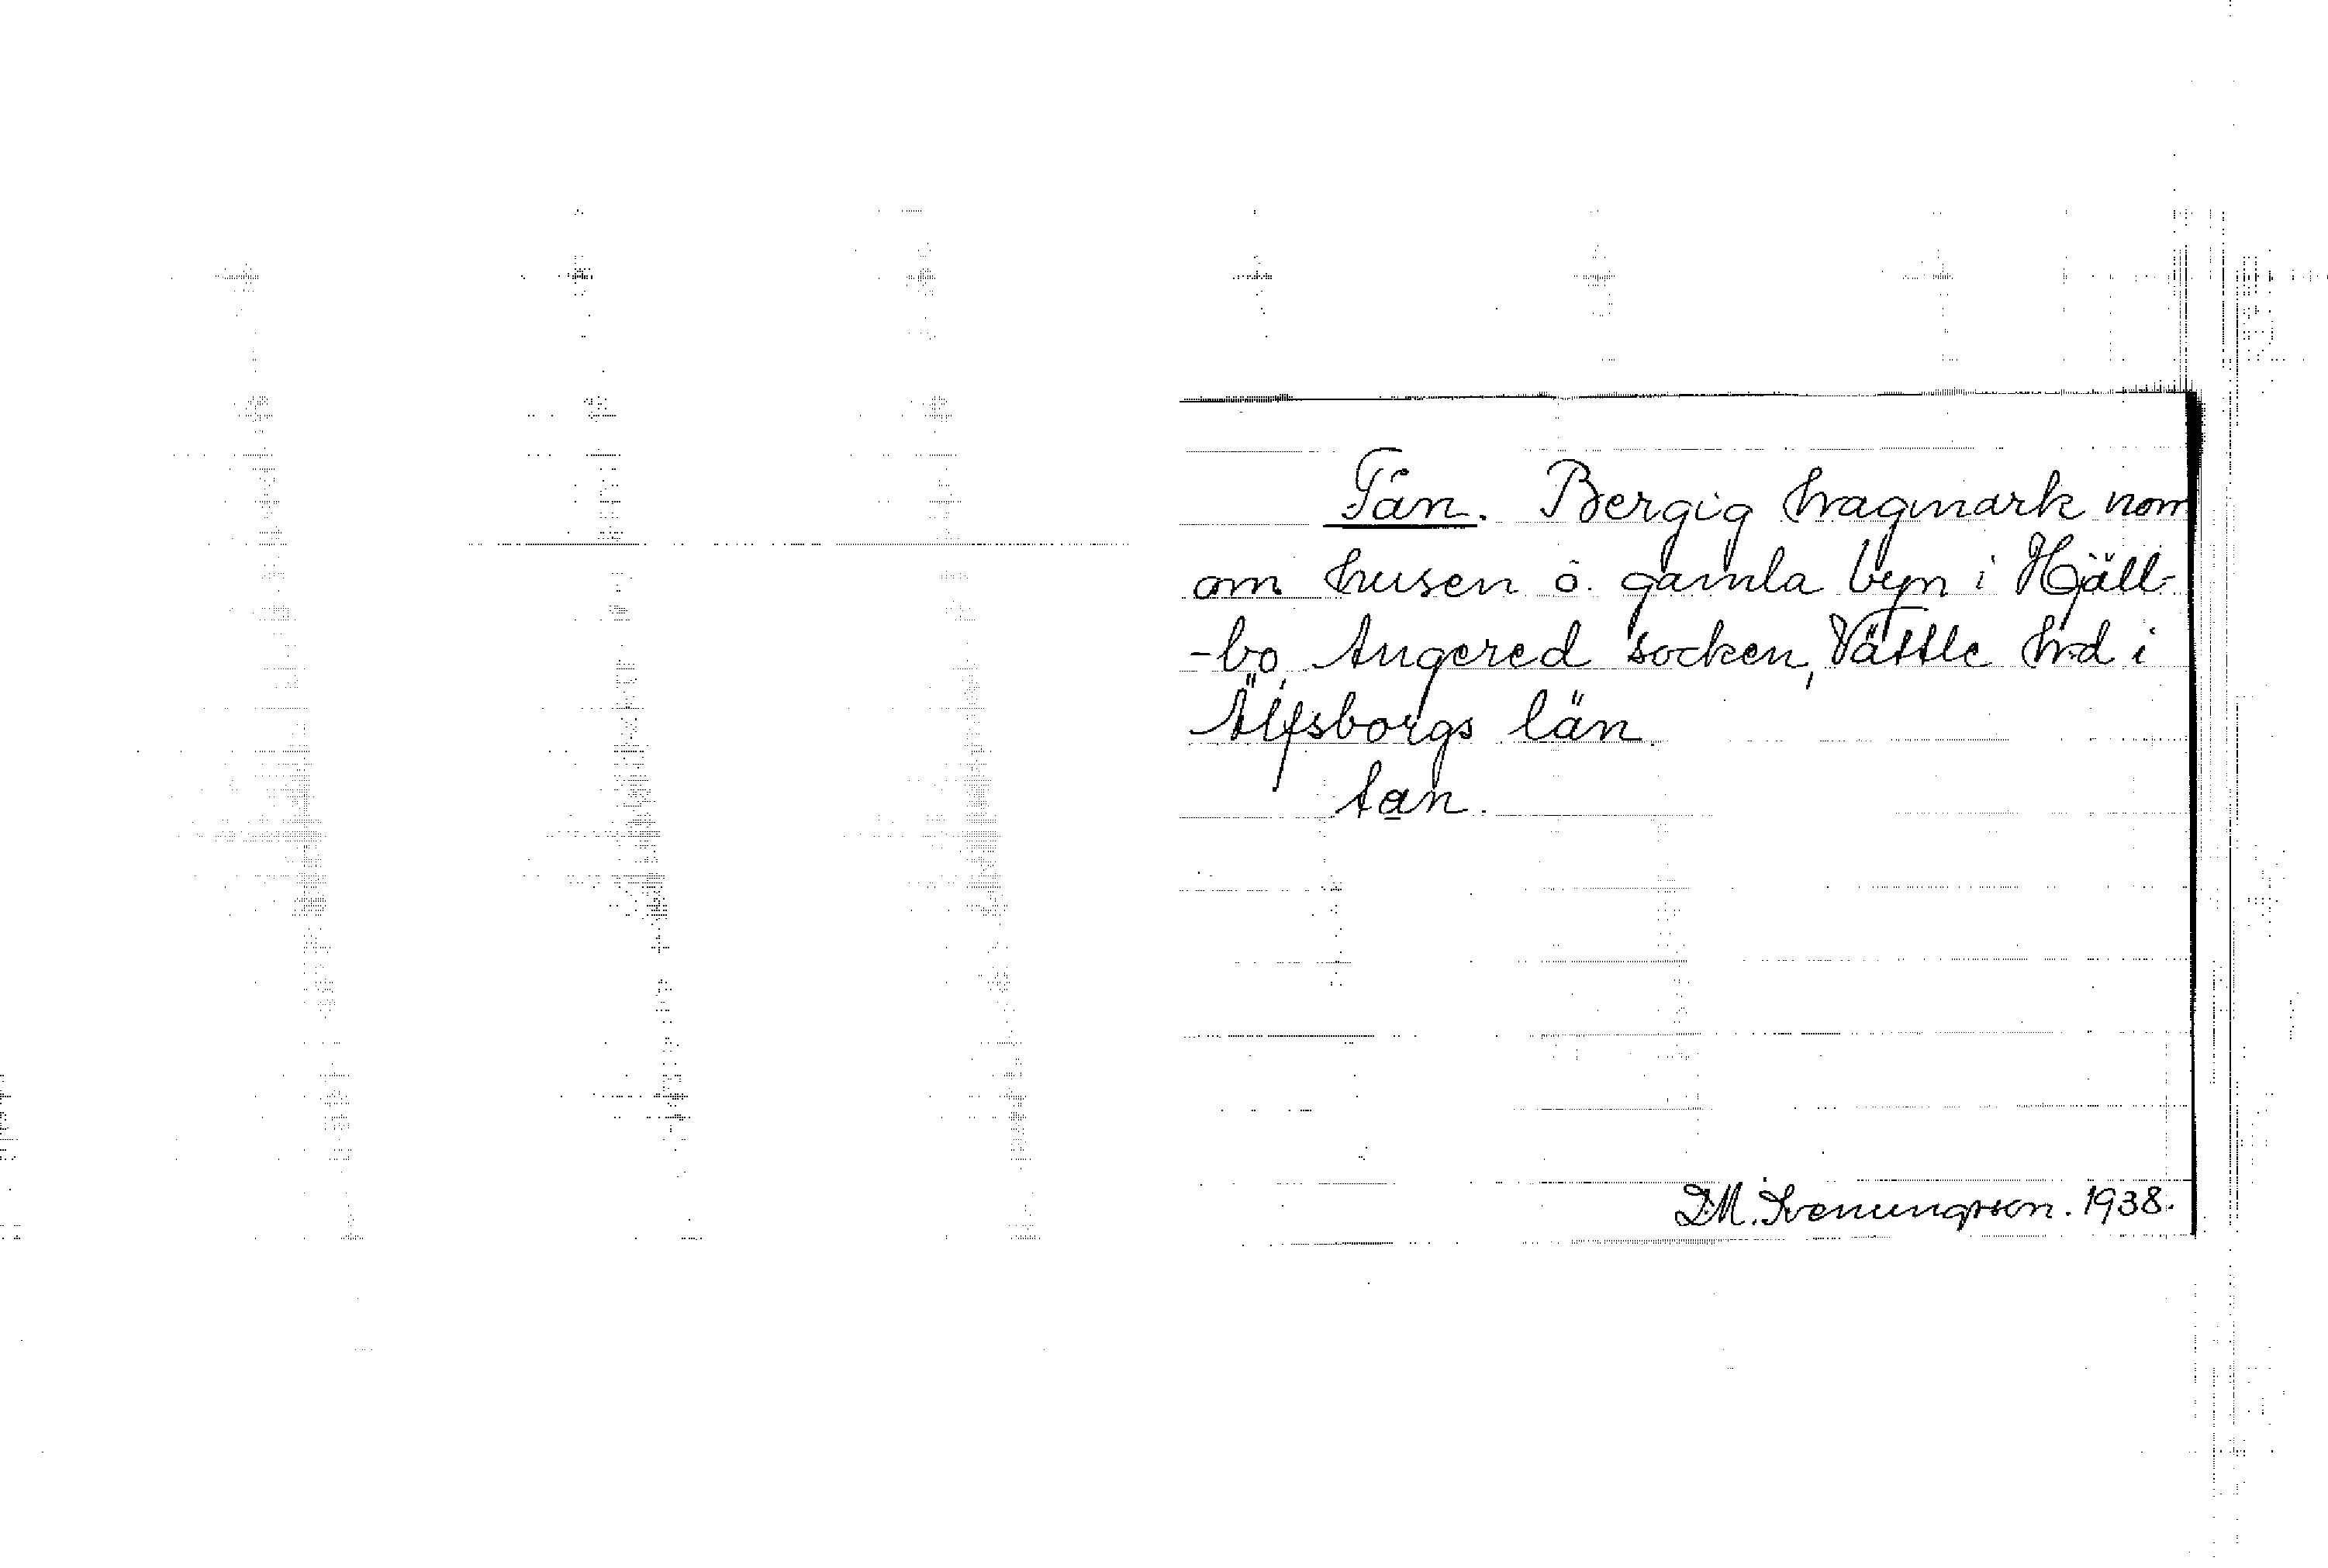 Tån. Bergig hagmark norr
om husen ö. gamla byn i Hjäll-
-bo, Angered socken, Vättle hrd i
Älfsborgs län.
tan.
D.M. Svenungsson. 1938.